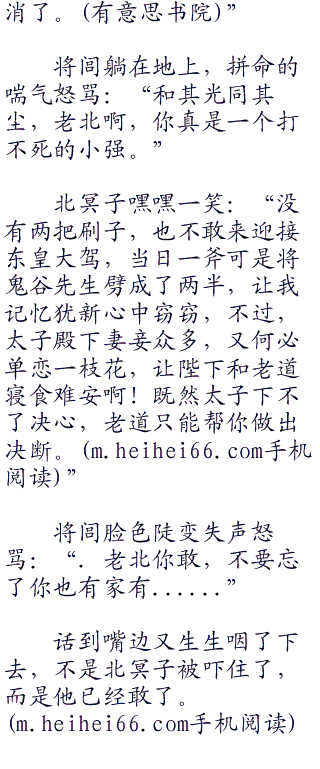 消了。(有意思书院)”
将闾躺在地上，拼命的
喘气怒骂：“和其光同其
尘，老北啊，你真是一个打
不死的小强。”
北冥子嘿嘿一笑：“没
有两把刷子，也不敢来迎接
东皇大驾，当日一斧可是将
鬼谷先生劈成了两半，让我
记忆犹新心中窃窃，不过，
太子殿下妻妾众多，又何必
单恋一枝花，让陛下和老道
寝食难安啊！既然太子下不
了决心，老道只能帮你做出
决断。(m.heihei66.com手机
阅读)”
将闾脸色陡变失声怒
骂：“．老北你敢，不要忘
了你也有家有......”
话到嘴边又生生咽了下
去，不是北冥子被吓住了，
而是他已经敢了。
(m.heihei66.com手机阅读)